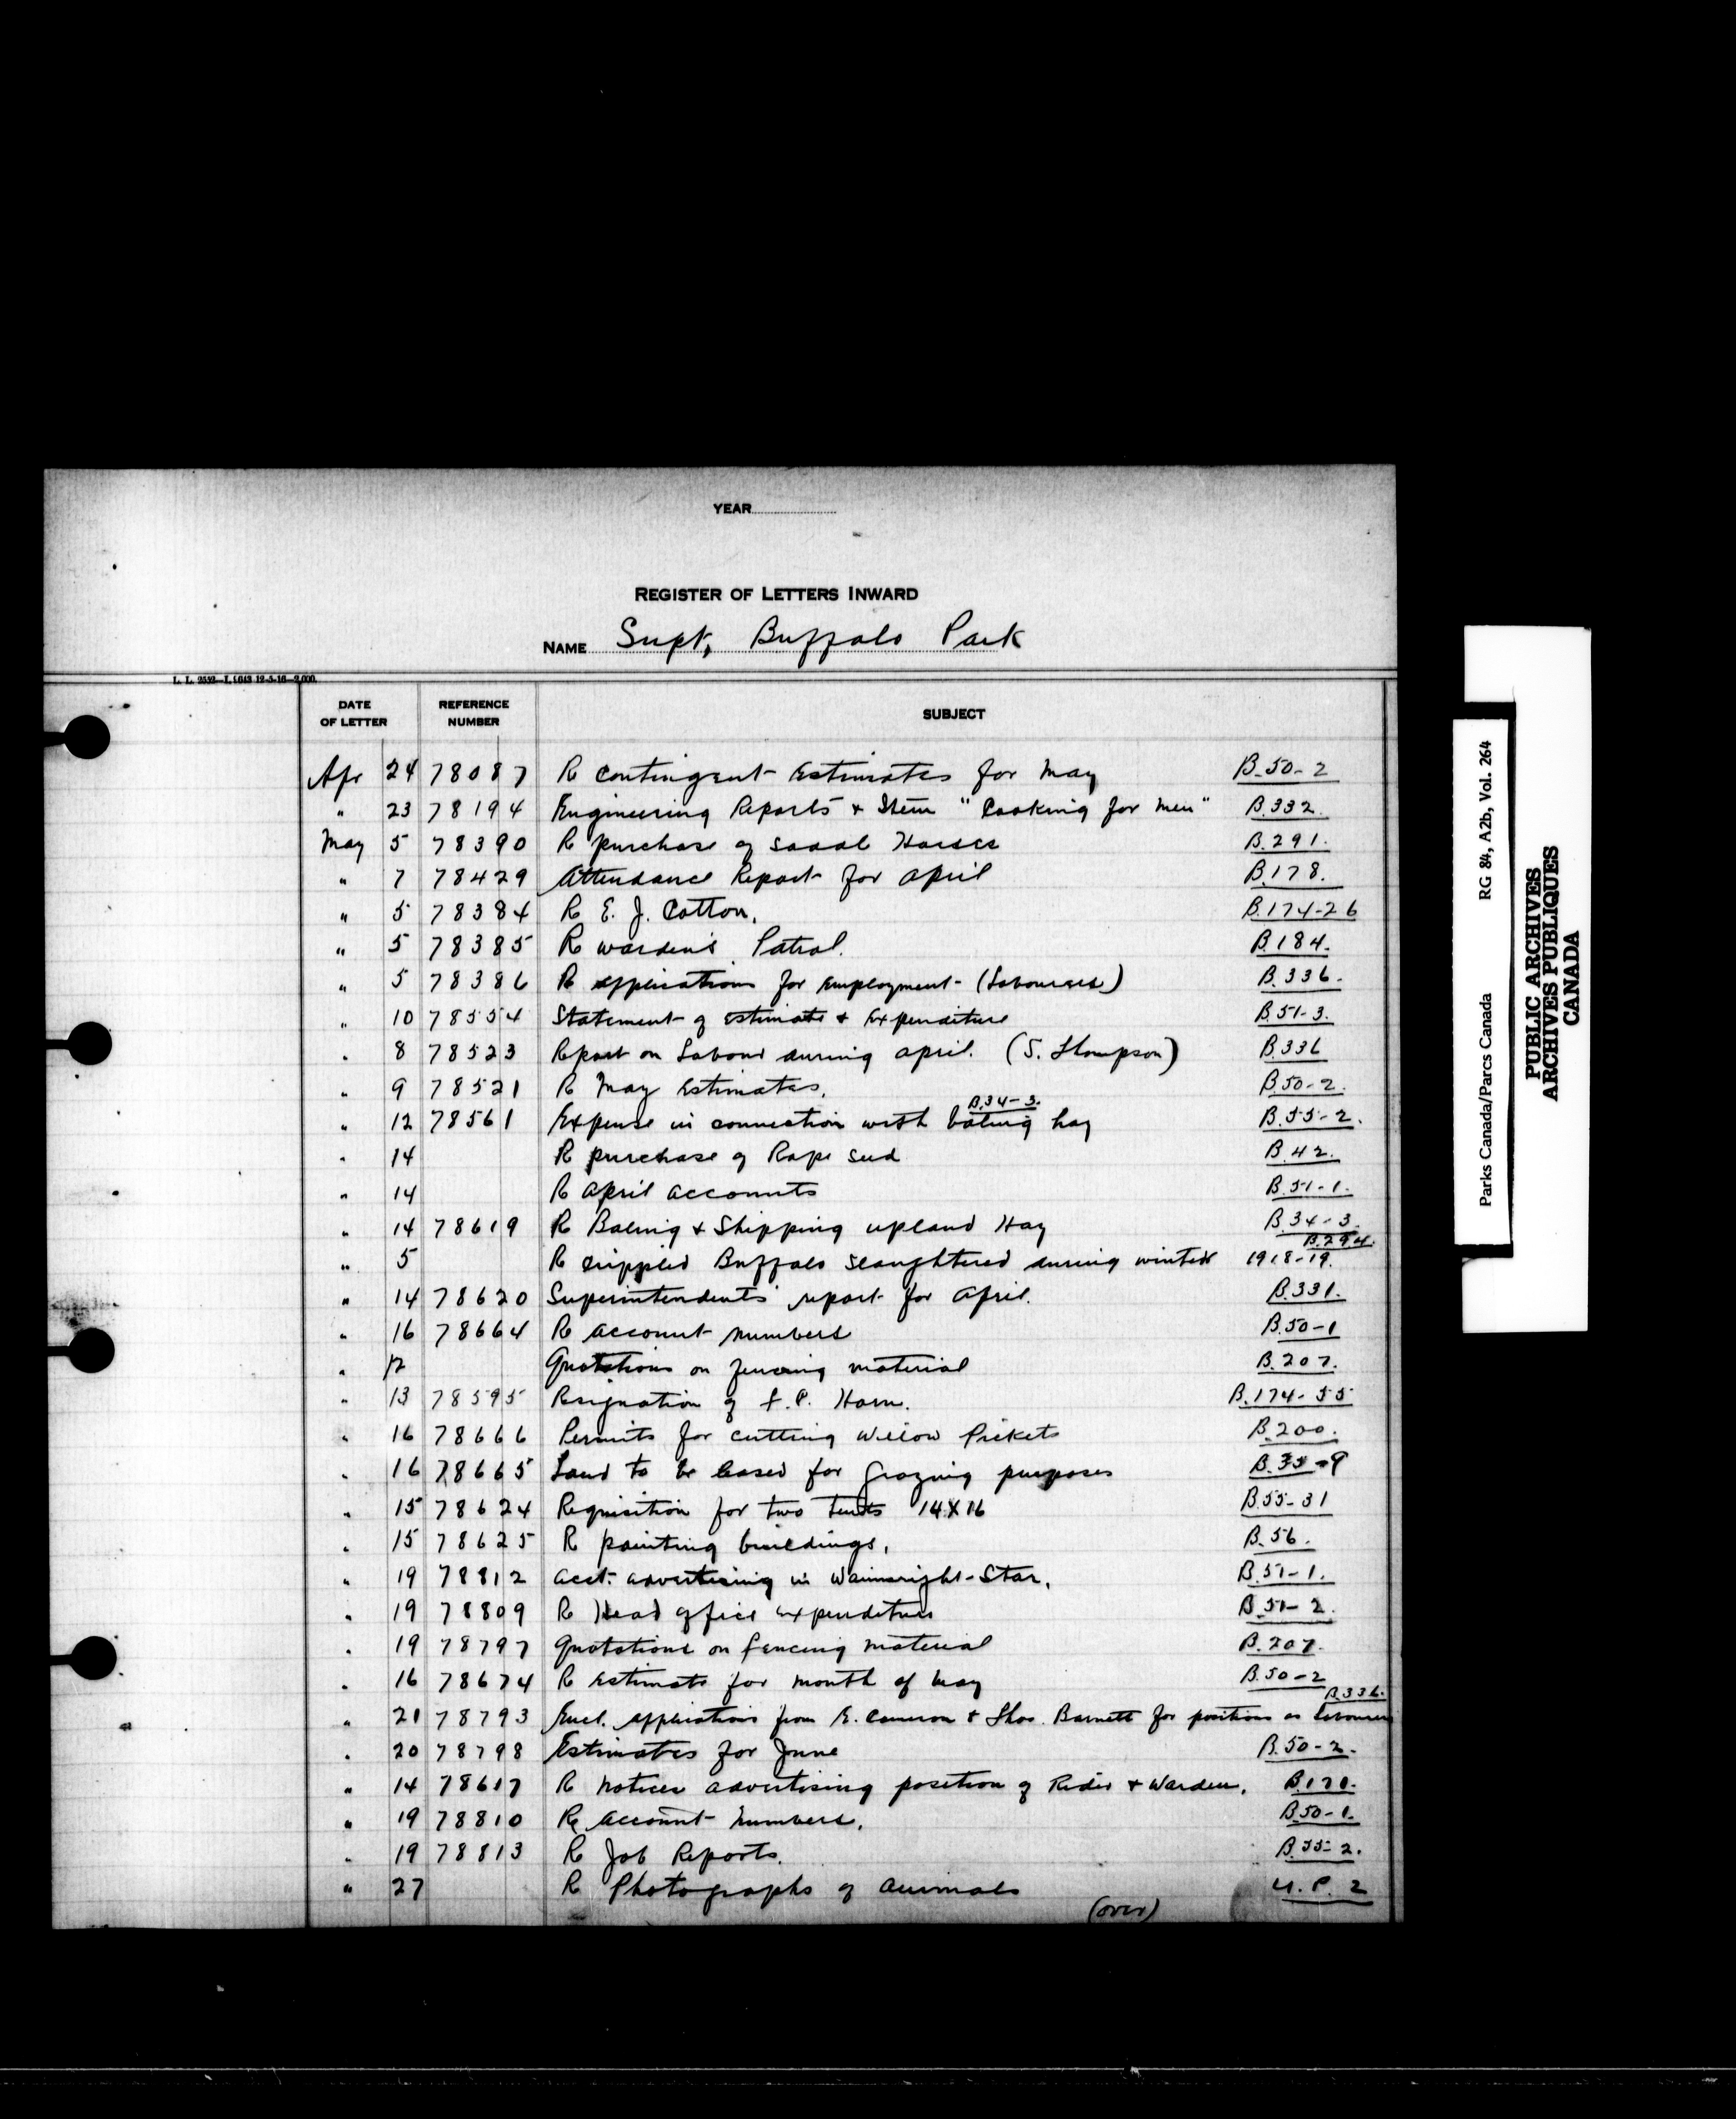 YEAR
REGISTER OF LETTERS INWARD
NAME Supt, Buffalo Park
L. L. 2552—I. 1643 12-5-16—2,000.
DATE OF LETTER REFERENCE NUMBER SUBJECT
Apr 24 78087 Re Contingent Estimates for May B.50-2
" 23 78194 Engineering Reports & Item "Cooking for men" B.332.
May 5 78390 Re purchase of Saddle Horses B.291.
" 7 78429 Attendance Report for April B.178.
" 5 78384 Re E. J. Cotton. B.174-26
" 5 78385 Re Warden's Patrol. B.184.
" 5 78386 Re applications for Employment (Labourers) B.336.
" 10 78554 Statement of Estimate & Expenditure B.51-3.
" 8 78523 Report on Labour during April. (S. Thompson) B.336
" 9 78521 Re May Estimates. B.50-2.
B.34-3.
" 12 78561 Expense in connection with baling hay B.55-2.
" 14 Re purchase of Rape Seed B.42.
" 14 Re April accounts B.51-1.
" 14 78619 Re Baling & Shipping upland Hay B.34-3.
B.294.
" 5 Re crippled Buffalo slaughtered during winter 1918-19.
" 14 78620 Superintendents' report for April. B.331.
" 16 78664 Re account numbers B.50-1
" 12 Quotations on fencing material B.207.
" 13 78595 Resignation of F. P. Horn. B.174-55
" 16 78666 Permits for cutting Willow Pickets B.200.
" 16 78665 Land to be leased for Grazing purposes B.35-9
" 15 78624 Requisition for two tents 14X16 B.55-31
" 15 78625 Re painting buildings. B.56.
" 19 78812 Acct. advertising in Wainwright Star. B.51-1.
" 19 78809 Re Head Office Expenditure B.51-2.
" 19 78797 Quotations on fencing material B.207.
" 16 78674 Re Estimate for month of May B.50-2
B.336.
" 21 78793 Encl. applications from E. Cameron & Thos. Barnett for positions as Labourers
" 20 78798 Estimates for June B.50-2.
" 14 78617 Re notices advertising position of Rider & Warden. B.171.
" 19 78810 Re account numbers. B.50-1.
" 19 78813 Re Job Reports. B.55-2.
" 27 Re Photographs of animals U.P. 2
(over)
Parks Canada/Parcs Canada RG 84, A2b, Vol. 264
PUBLIC ARCHIVES
ARCHIVES PUBLIQUES
CANADA